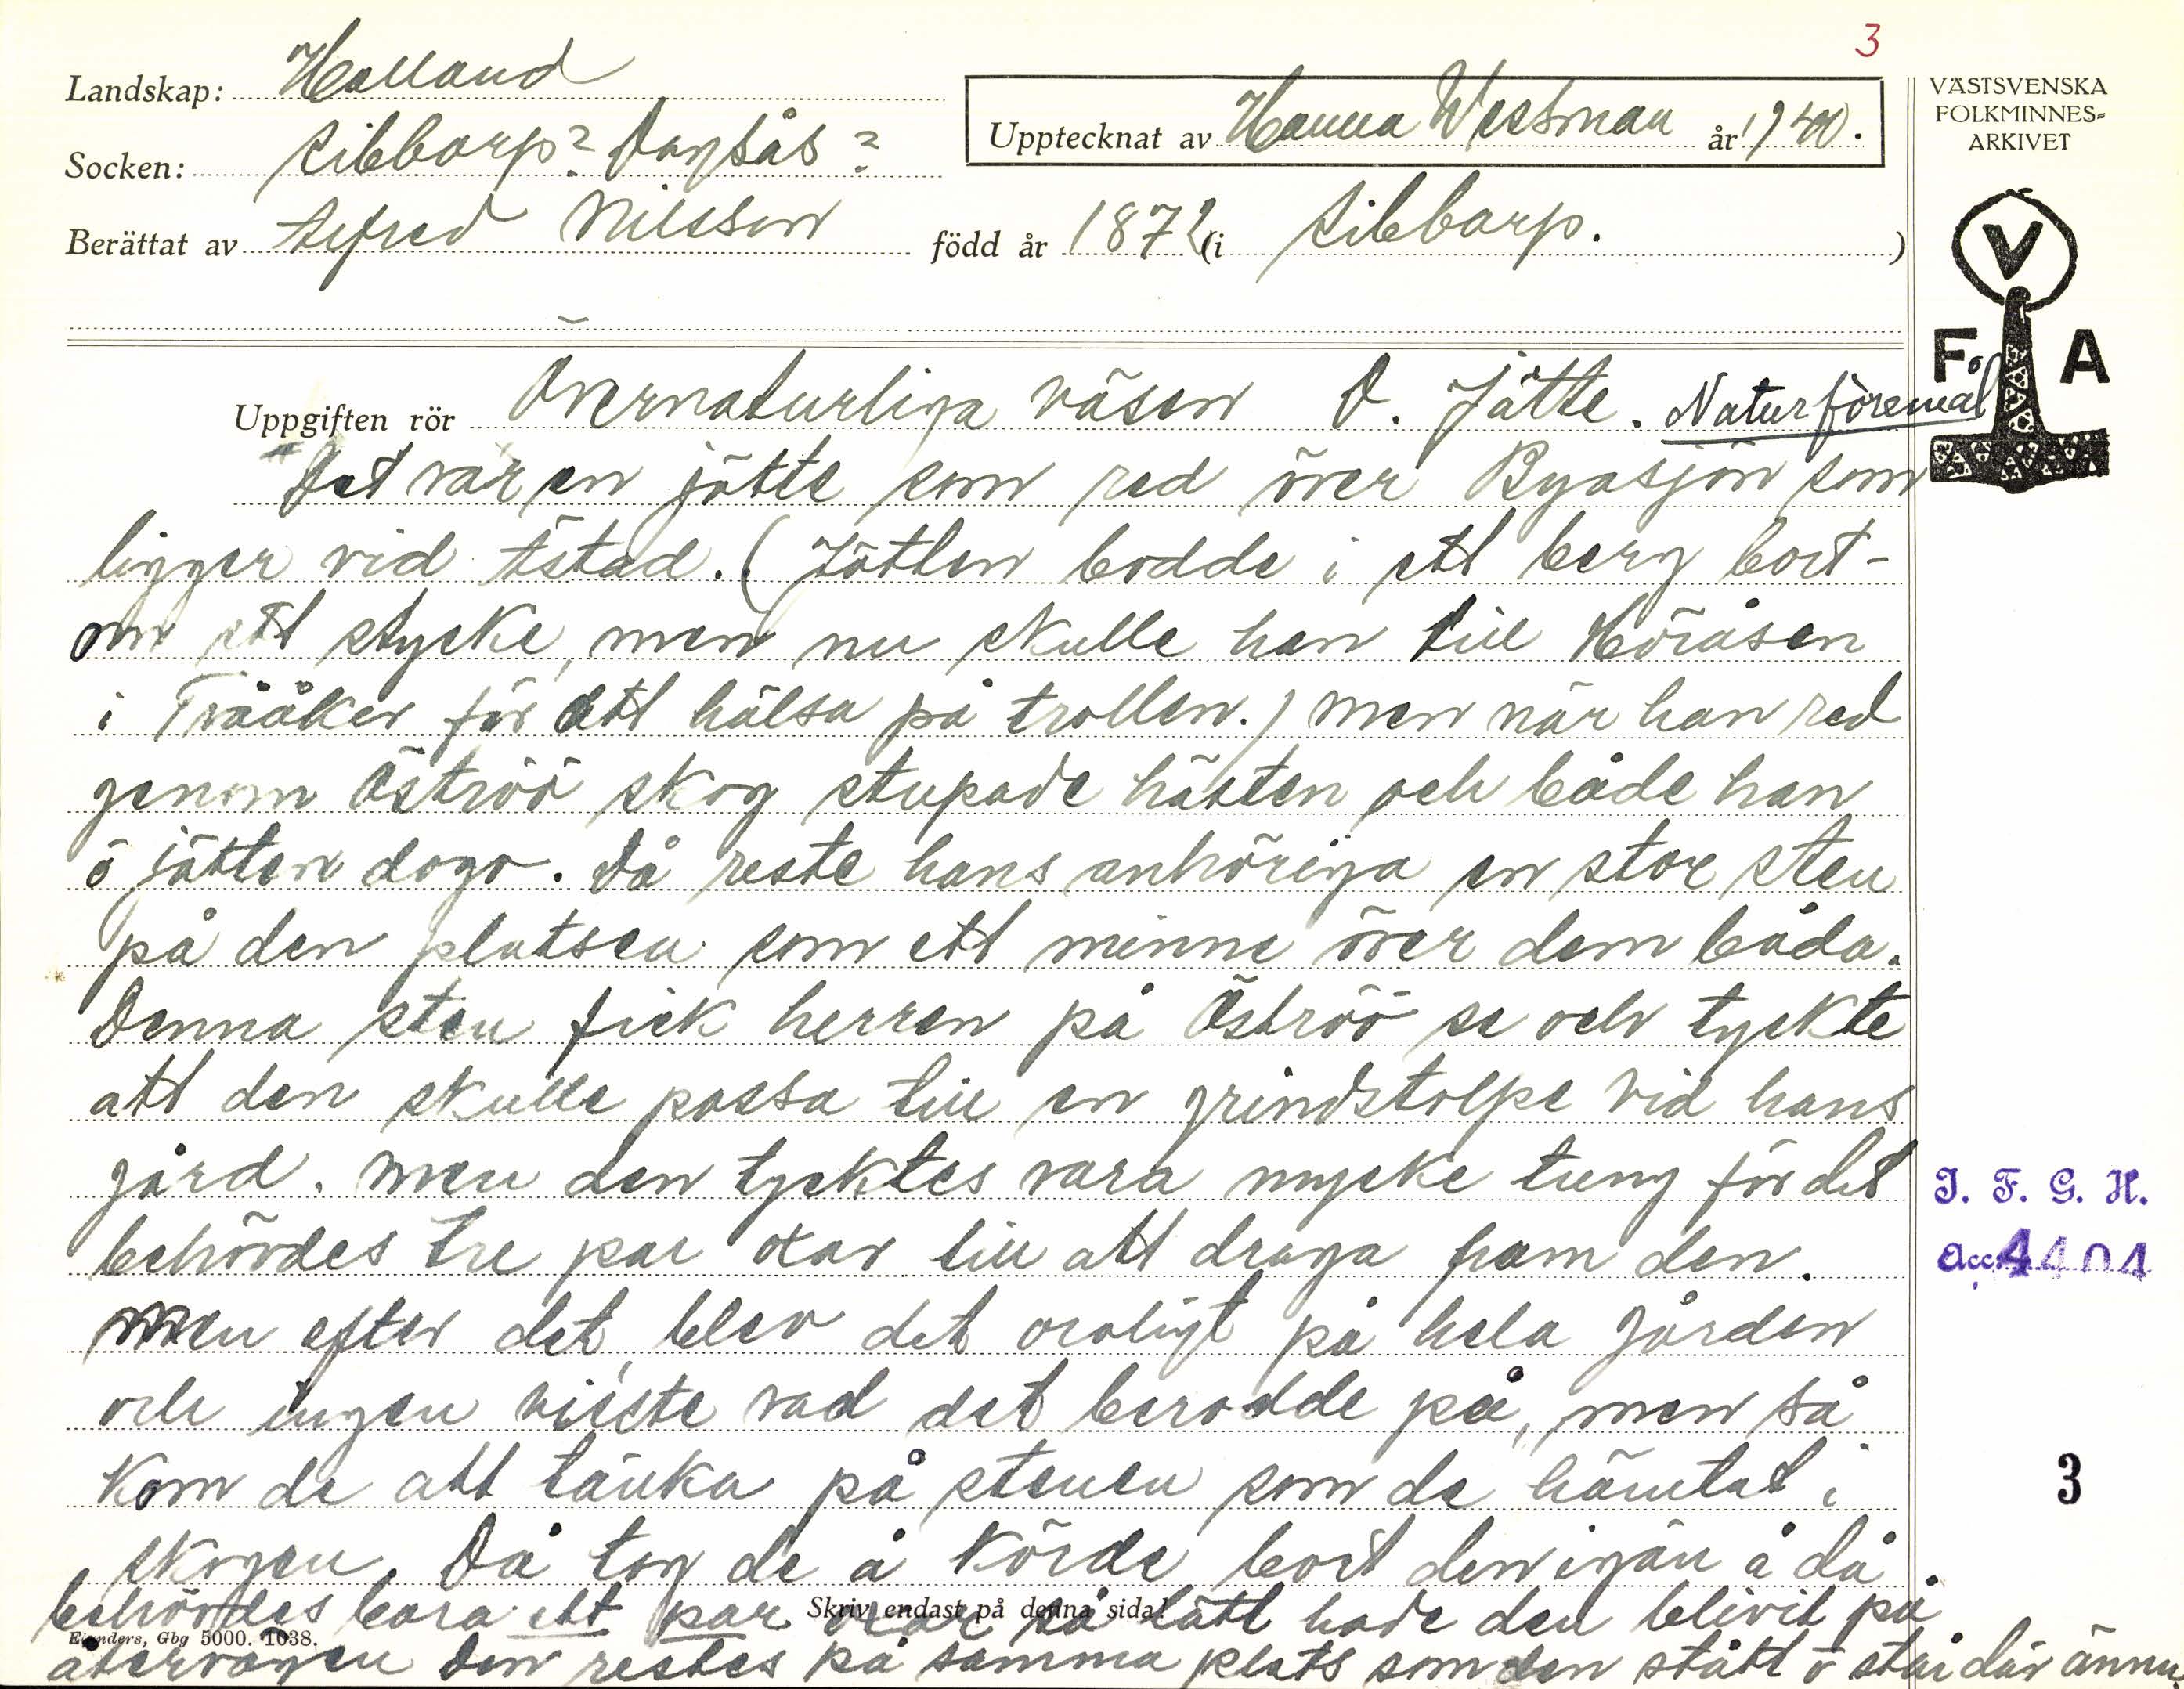 3
Landskap: Halland
Socken: Sibbarp? Dagsås?
Upptecknat av Hanna Westman år 1940.
Berättat av Alfred Nilsson född år 1872 (i Sibbarp. )
VÄSTSVENSKA
FOLKMINNES-
ARKIVET
V
F A
Uppgiften rör Övernaturliga väsen O. Jätte. Naturföremål
Det var en jätte som red över Byasjön som
ligger vid Ästad. (Jätten bodde i ett berg bort-
om ett stycke, men nu skulle han till Höråsen
i Tvååker för att hälsa på trollen.) men när han red
genom Öströö skog stupade hästen och både han
ö jätten dogo. Då reste hans anhöriga en stor sten
på den platsen som ett minne över dem båda.
Denna sten fick herren på Öströö se och tyckte
att den skulle passa till en grindstolpe vid hans
gård. Men den tycktes vara mycke tung för det
behövdes tre par oxar till att draga fram den.
Men efter det, blev det oroligt på hela gården
och ingen visste vad det berodde på, men så
kom de att tänka på stenen som de hämtat i
skogen. Då tog de å körde bort den igän å då
behövdes bara ett par oxar så lätt hade den blivit på
återvägen Den restes på samma plats som den stått ö står där ännu.
Skriv endast på denna sida!
Elanders, Gbg 5000. 1038.
I. F. G. H.
Acc. 4404
3